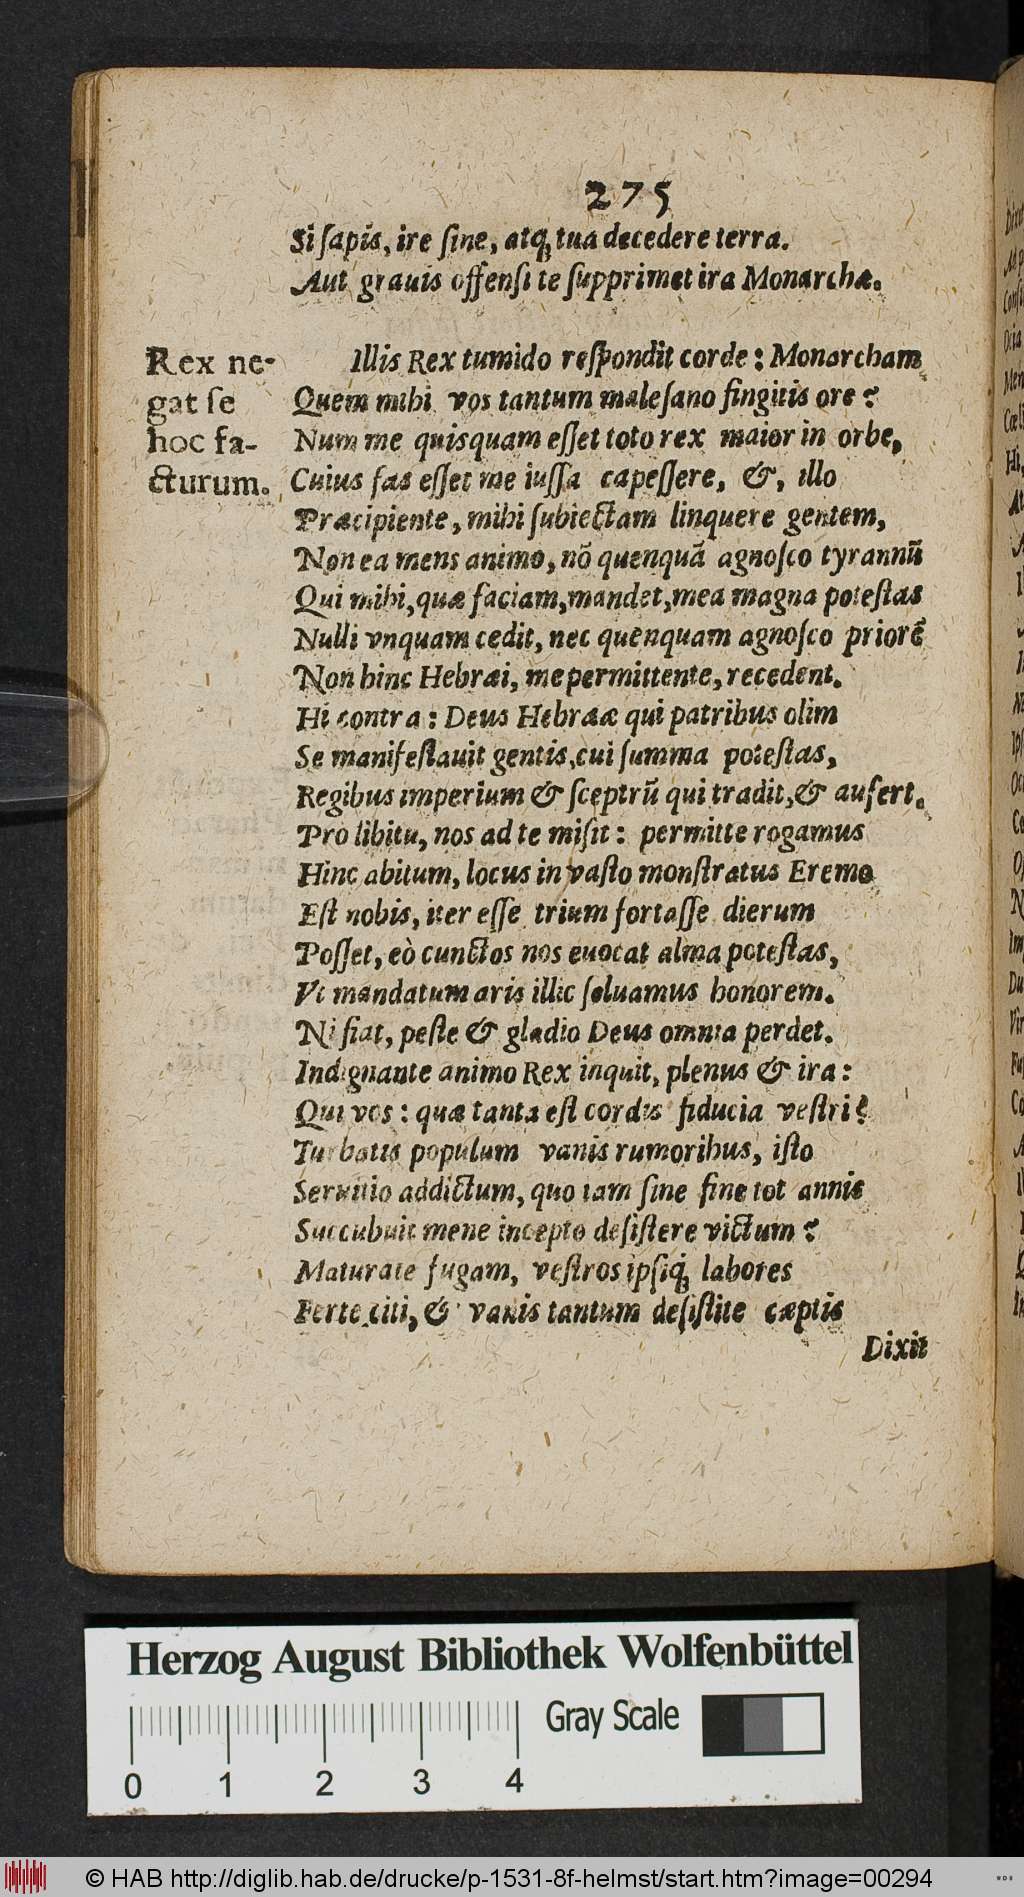 275
Si ſapis, ire ſine, atq́ꝫ tua decedere terra.
Aut grauis offenſi te ſupprimet ira Monarchæ.
Rex ne-
gat ſe
hoc fa-
cturum.
Illis Rex tumido reſpondit corde: Monarcham
Quem mihi vos tantum maleſano fingitis ore?
Num me quisquam eſſet toto rex maior in orbe,
Cuius fas eſſet me iuſſa capeſſere, &, illo
Præcipiente, mihi ſubiectam linquere gentem,
Non ea mens animo, nõ quenquã agnoſco tyrannũ
Qui mihi, quæ faciam, mandet, mea magna poteſtas
Nulli vnquam cedit, nec quenquam agnoſco priorẽ
Non hinc Hebræi, me permittente, recedent.
Hi contra: Deus Hebrææ qui patribus olim
Se manifeſtauit gentis, cui ſumma poteſtas,
Regibus imperium & ſceptrũ qui tradit, & aufert.
Pro libitu, nos ad te miſit: permitte rogamus
Hinc abitum, locus in vaſto monſtratus Eremo
Eſt nobis, iter eſſe trium fortaſſe dierum
Poſſet, eò cunctos nos euocat alma poteſtas,
Vt mandatum aris illic ſoluamus honorem.
Ni fiat, peſte & gladio Deus omnia perdet.
Indignante animo Rex inquit, plenus & ira:
Qui vos: quæ tanta eſt cordis fiducia veſtri?
Turbatis populum vanis rumoribus, iſto
Seruitio addictum, quo iam ſine fine tot annis
Succubuit mene incepto deſiſtere victum?
Maturate fugam, veſtros ipſiq́ꝫ labores
Ferte citi, & vanis tantum deſiſtite cæptis
Dixit
Herzog August Bibliothek Wolfenbüttel
Gray Scale
0 1 2 3 4
© HAB http://diglib.hab.de/drucke/p-1531-8f-helmst/start.htm?image=00294